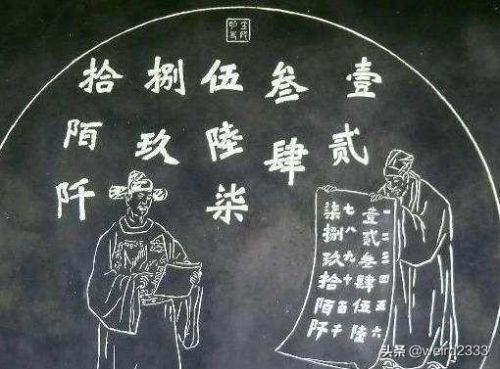 壹贰
叁肆
伍陸柒
捌玖
拾陌阡
一二三四五六
壹贰叁肆伍陸
七八九十百千
柒捌玖拾陌阡
头条